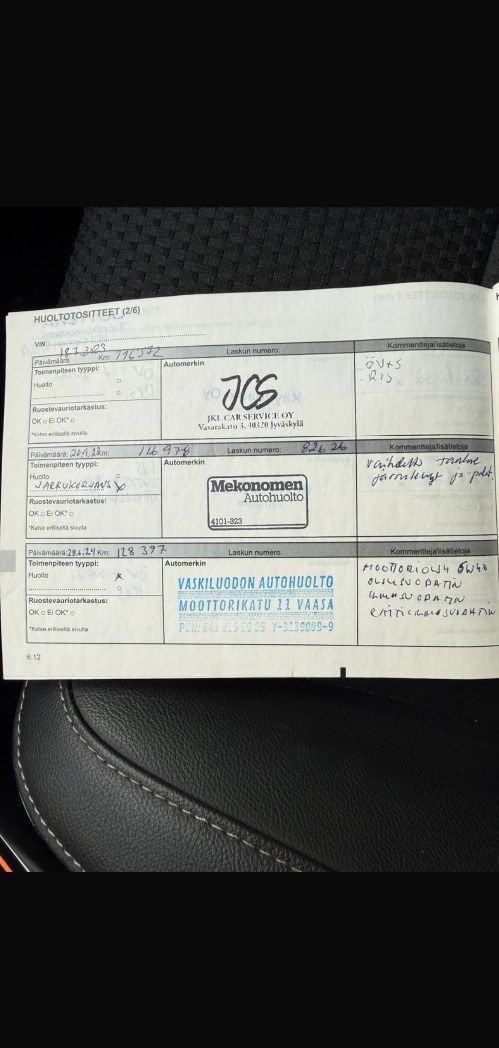 HUOLTOTOSITTEET (2/6)
VIN:
Päivämäärä: 18.7.2023 Km: Laskun numero Kommentteja/lisätietoja
Toimenpiteen tyyppi: Automerkin
Huolto
JCS
JKL CAR SERVICE OY
Vasarakatu 3, 40320 Jyväskylä
Ruostevauriotarkastus:
OK □ Ei OK* □
*Katso erilliseltä sivulta
ÖV+S
Päivämäärä: Km: 116 978 Laskun numero: 82626 Kommentteja/lisätietoja
Toimenpiteen tyyppi: Automerkin
Huolto
Mekonomen
Autohuolto
4101-323
Ruostevauriotarkastus:
OK □ Ei OK* □
*Katso erilliseltä sivulta
vaihdettu
jarrulevyt ja palat
Päivämäärä: 28.6.24 Km: 128 397 Laskun numero: Kommentteja/lisätietoja
Toimenpiteen tyyppi: Automerkin
Huolto x
VASKILUODON AUTOHUOLTO
MOOTTORIKATU 11 VAASA
Ruostevauriotarkastus:
OK □ Ei OK* □
*Katso erilliseltä sivulta
MOOTTORIÖLJY 5W40
ÖLJYSUODATIN
ILMASUODATIN
RAITISILMASUODATIN
6.12